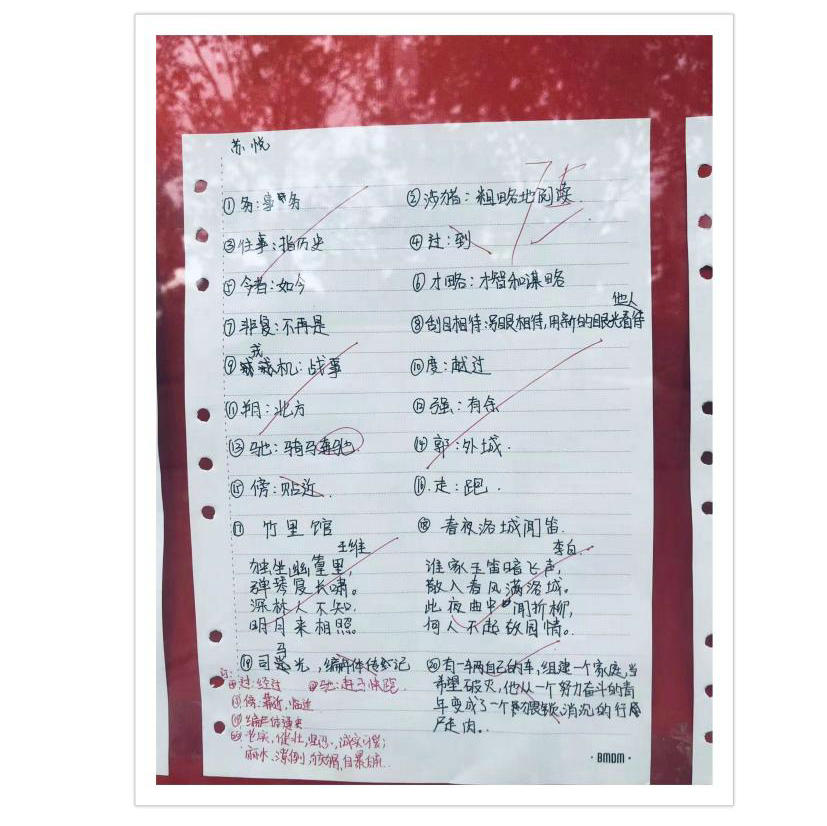 苏悦
①务:事务
②涉猎:粗略地阅读.
③往事:指历史
④过:到
⑤今者:如今
⑥才略:才智和谋略
⑦非复:不再是
他人
⑧刮目相待:另眼相待,用新的眼光看待
戎
⑨机:战事
⑩度:越过
⑪朔:北方
⑫强:有余
⑬驰:骑马奔驰.
⑭郭:外城.
⑮傍:贴近.
⑯走:跑.
⑰竹里馆
王维
独坐幽篁里,
弹琴复长啸。
深林人不知.
明月来相照.
⑱春夜洛城闻笛.
李白.
谁家玉笛暗飞声,
散入春风满洛城。
此夜曲中闻折柳,
何人不起故园情。
马
⑲司光,编年体传记
⑳有一辆自己的车,组建一个家庭,当
希望破灭,他从一个努力奋斗的青
年变成了一个,消沉的行
尸走肉.
过:经过
驰:赶马快跑.
傍:靠近,临近
编年体通史
老实,健壮,坚忍,
麻木、潦倒、狡猾,自暴
BMDM